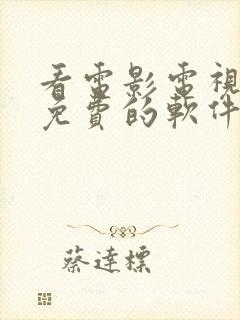 看電影電視
免費的軟件
蔡達標